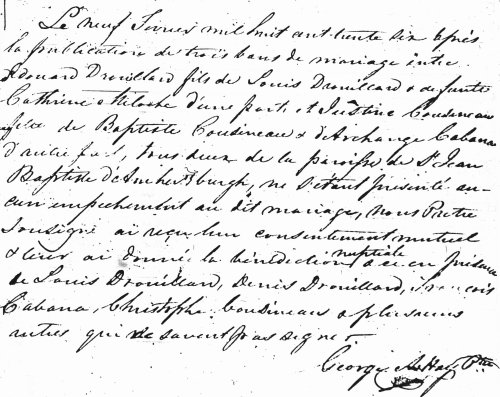 Le neuf Fevrier mil huit cent trente six après
la publication de trois bans de mariage entre
Edouard Drouillard fils de Louis Drouillard & de feüe
Cathrine Meloche d'une part et Justine Cousineau
fille de Baptiste Cousineau & d'Archange Cabana
d'autre part, tous deux de la paroisse de St Jean
Baptiste d'Amherstburgh, ne s'étant présenté au-
cun empechement au dit mariage, nous Pretre
Sousigné ai reçu leur consentement mutuel
& leur ai donnée la bénédiction nuptiale & ce en présence
de Louis Drouillard, Denis Drouillard, François
Cabana, Christophe Cousineau & plusieurs
autres qui ne savent pas signer.
George A. Hay Ptre